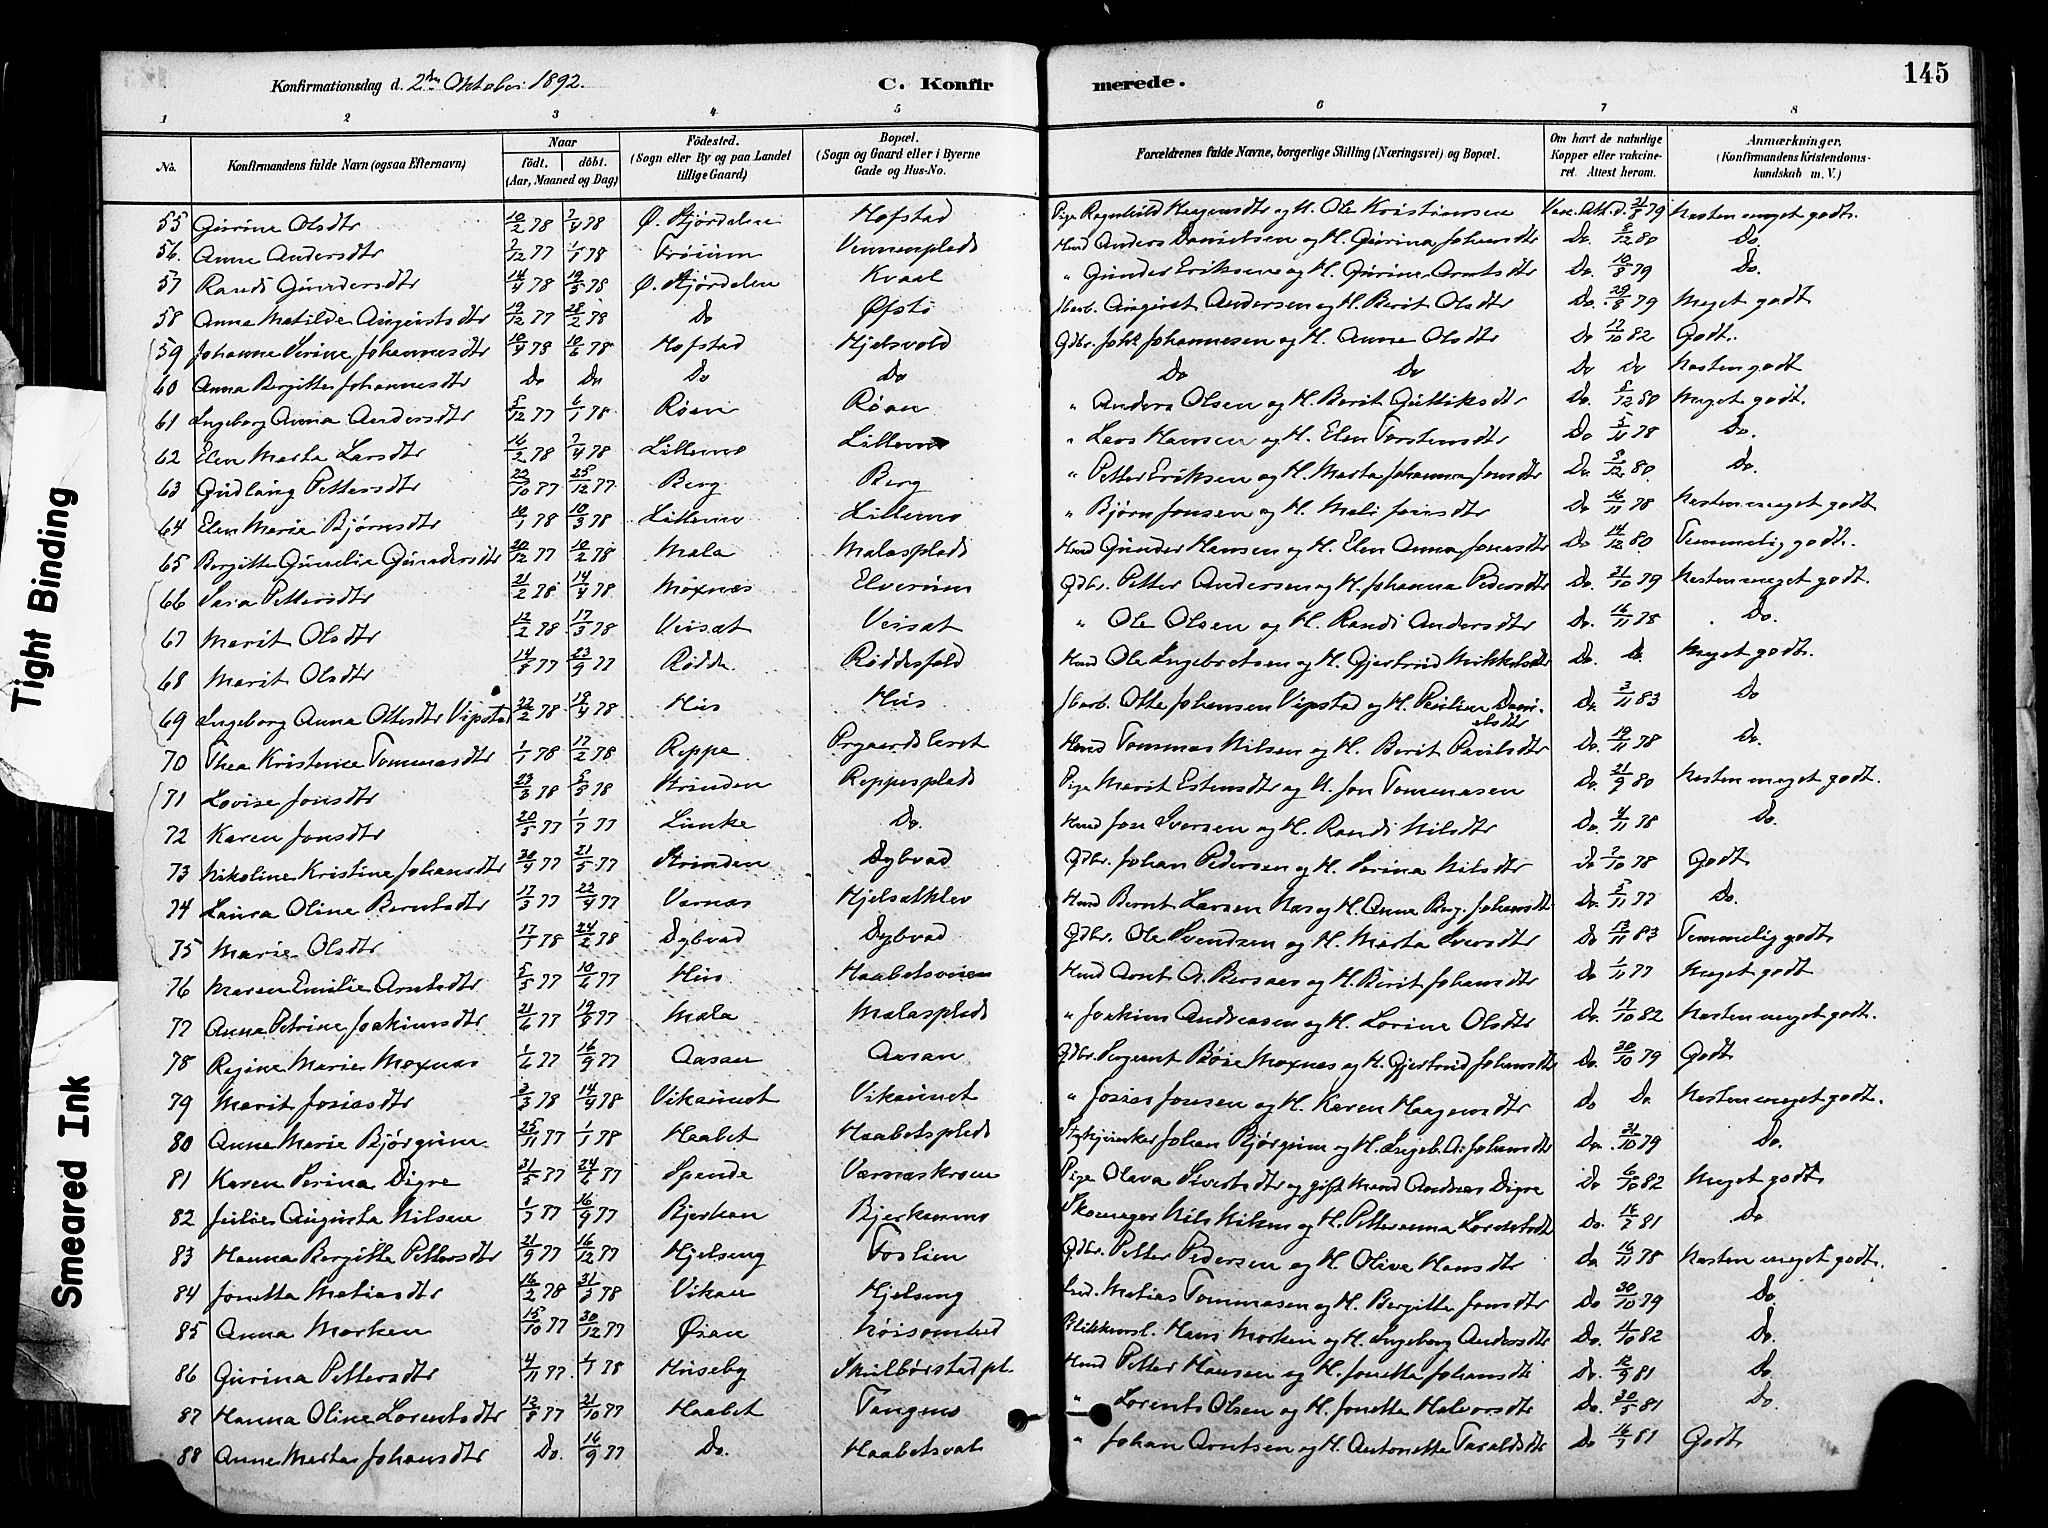 Konfirmationsdag d. 2den Oktober 1892. C. Konfirmerede. 145
1 2 3 4 5 6 7 8
No. Konfirmandens fulde Navn (ogsaa Efternavn) Naar födt. döbt. (Aar, Maaned og Dag) Födested. (Sogn eller By og paa Landet tillige Gaard) Bopæl. (Sogn og Gaard eller i Byerne Gade og Hus-No. Forældrenes fulde Navne, borgerlige Stilling (Næringsvei) og Bopæl. Om havt de naturlige Kopper eller vakcineret. Attest herom. Anmærkninger, (Konfirmandens Kristendomskundskab m. V.)
55 Gurine Olsdtr 10/2 78 7/4 78 Ø. Stjørdalen Hofstad Pige Ragnhild Haagensdtr og U. Ole Kristiansen Vacc. Att. d. 21/8 79 Næsten meget godt.
56. Anne Andersdtr 7/12 77 1/1 78 Vennesplads Hmd Anders Danielsen og H. Gurina Johansdtr Do. 8/12 80 Do.
57 Randi Gundersdtr 14/4 78 19/5 78 Ø. Stjørdalen Kvaal " Gunder Eriksen og H. Gurine Arntsdtr Do. 10/8 79 Do.
58 Anne Matilde Augustsdtr 19/12 77 28/2 78 Do Øfsti August Andersen og H. Berit Olsdtr Do. 29/8 79 Meget godt
59 Johanne Serine Johannesdtr 10/4 78 10/6 78 Hofstad Hjelsvold Gdbr. Joh. Johannesen og H. Anne Olsdtr Do 17/10 82 Godt.
60 Anna Bergitte Johannesdtr Do Do Do Do Do Do Do Do Næsten godt
61 Ingeborg Anna Andersdtr 5/12 77 6/1 78 Røan Røan " Anders Olsen og H. Berit Gulliksdtr Do. 8/12 80 Meget godt.
62 Elen Marta Larsdtr 14/2 78 7/4 78 Lillemo Lillemo " Lars Hansen og H. Elen Torstensdtr Do 5/11 78 Do.
63 Gudlaug Pettersdtr 22/10 77 25/12 77 Berg Berg " Petter Eriksen og H. Marta Johanna Jonsdtr Do. 8/12 80. Do.
64 Elen Marie Bjørnsdtr 10/1 78 10/3 78 Lillemo Lillemo " Bjørn Jonsen og H. Mali Jonsdtr Do 16/11 78 Næsten meget godt
65 Bergitte Gunelia Gundersdtr 20/12 77 10/2 78 Mala Malasplads Hmd Gunder Hansen og H. Elen Anna Jonasdtr Do 14/12 80 Temmelig godt.
66 Sara Pettersdtr 21/2 78 14/4 78 Moxnæs Elverum Gdbr. Petter Andersen og H. Johanna Pedersdtr Do. 21/10 79 Næsten meget godt.
67 Marit Olsdtr 12/2 78 17/3 78 Veisat Veisat " Ole Olsen og H. Randi Andersdtr Do. 16/11 78 Do.
68 Marit Olsdtr 14/8 77 23/9 77 Rødde Røddesfald Hmd Ole Ingebretsen og H. Gjertrud Mikkelsdtr Do. Do. Meget godt.
69 Ingeborg Anna Ottesdtr Vipstad 22/2 78 19/4 78 Hus Hus Otte Johansen Vipstad og H. Pauline Danielsdtr Do. 3/11 83 Do
70 Thea Kristense Tommasdtr 1/1 78 17/2 78 Reppe Prgaardsleret Hmd Tommas Nilsen og H. Berit Paulsdtr Do. 19/11 78 Do.
71 Lovise Jonsdtr 23/3 78 5/5 78 Strinden Reppesplads Pige Marit Estensdtr og U. Jon Tommasen Do. 21/9 80 Næsten meget godt.
72 Karen Jonsdtr 20/5 77 1/7 77 Lunke Do. Hmd Jon Iversen og H. Randi Nilsdtr Do. 4/11 78 Do.
73 Nikoline Kristine Johansdtr 20/4 77 21/5 77 Strinden Dybvad Gdbr. Johan Pedersen og H. Serina Nilsdtr Do 7/10 78 Godt
74 Laura Oline Berntsdtr 17/3 77 22/4 77 Værnes Hjelsetklev Hmd Bernt Larsen Næs og H. Anna Berg. Johansdtr Do. 5/11 77 Do.
75 Marie Olsdtr 17/1 78 24/2 78 Dybvad Dybvad Gdbr. Ole Svendsen og H. Marta Iversdtr Do 13/11 83 Temmelig godt
76 Maren Emilie Arntsdtr 5/5 77 10/6 77 Hus Haabetsveien Hmd Arnt A. Bersaas og H. Berit Johansdtr Do 1/11 77 Meget godt
77 Anna Petrine Joakimsdtr 21/6 77 19/8 77 Mala Malasplads " Joakim Andreasen og H. Lorine Olsdtr Do. 17/10 82 Næsten meget godt.
78 Regine Marie Moxnæs 1/6 77 16/9 77 Aasan Aasan Gdbr. Sergeant Moxnæs og H. Gjertrud Johansdtr Do. 30/10 79 Godt
79 Marit Josiasdtr 2/3 78 14/4 78 Vikaunet Vikaunet " Josias Jonsen og H. Karen Haagensdtr Do Do. Næsten meget godt.
80 Anne Marie Bjørgum 25/11 77 1/1 78 Haabet Haabetsplads Johan Bjørgum og H. Ingeb. A. Johansdtr Do. 31/10 79 Do.
81 Karen Serina Digre 31/5 77 24/6 77 Spende Værnæskroen Pige Olava Sivertsdtr og gift Mand Andreas Digre Do 6/10 82 Meget godt
82 Julie Augusta Nilsen 1/7 77 16/9 77 Bjerkan Bjerkanmo Skomager Nils Nilsen og H. Petteranna Do. 16/7 81 Do
83 Hanna Bergitte Pettersdtr 21/9 77 16/12 77 Hjelseng Foslien Gdbr. Petter Pedersen og H. Olive Hansdtr Do 16/11 78 Næsten meget godt.
84 Jonetta Matiasdtr 16/2 78 31/3 78 Vikan Hjelseng Matias Tommasen og H. Bergitte Jonsdtr Do 30/10 79 Do
85 Anna Morken 15/10 77 30/12 77 Øian Hans Morken og H. Ingeborg Andersdtr Do. 4/10 82 Do.
86 Gurina Pettersdtr 4/11 77. 1/1 78 Husby Skulbørstad pl. Hmd Petter Hansen og H. Jonetta Johansdtr Do. 12/9 81 Do
87 Hanna Oline Lorentsdtr 12/8 77 21/10 77 Haabet Tangens " Lorents Olsen og H. Jonetta Halvorsdtr Do. 30/5 81 Do
88 Anne Marta Johansdtr Do. 16/9 77 Do. Haabetsvol " Johan Arntsen og H. Antonetta Taraldsdtr Do 16/7 81 Godt
Tight Binding
Smeared Ink